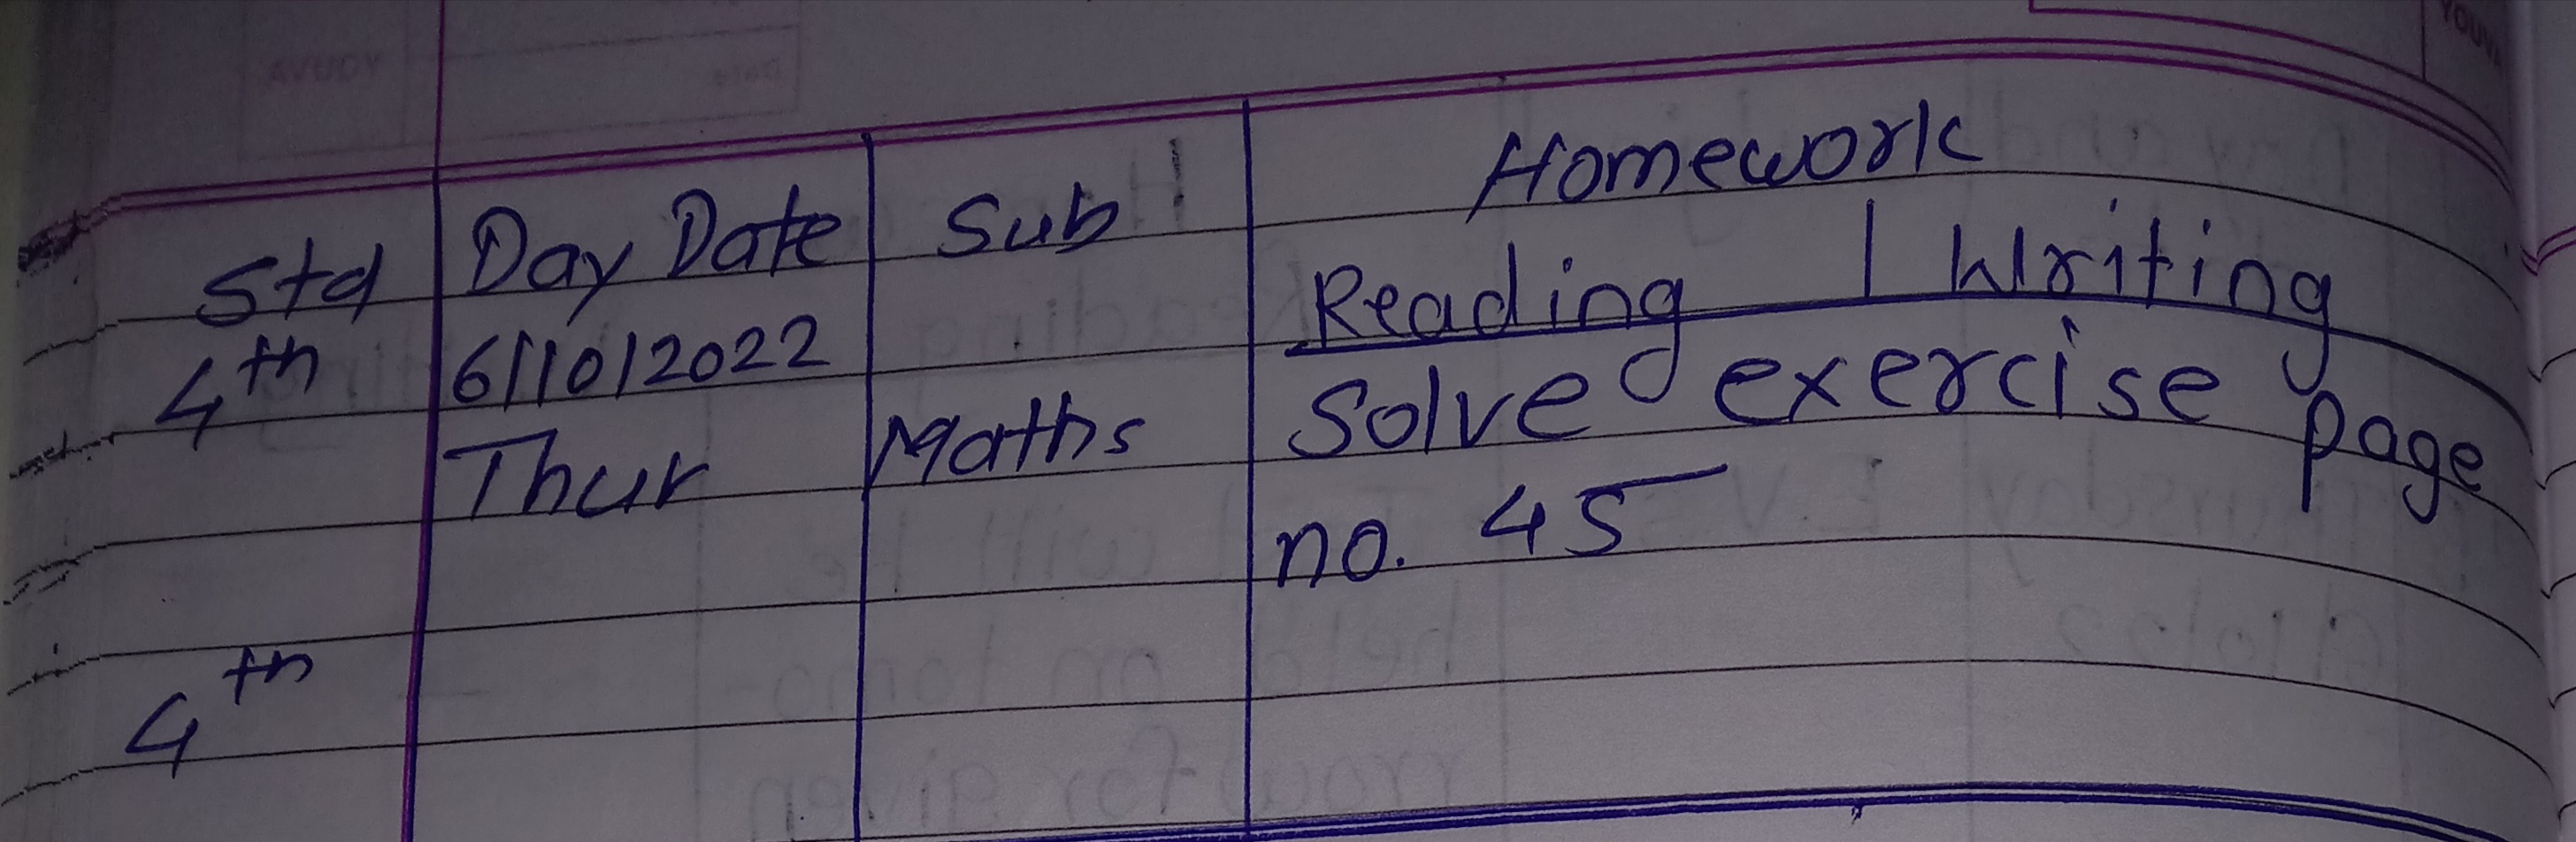 Std Day Date Sub Homework
Reading | Writing
4th 6/10/2022 Solve exercise page
Thur Maths no. 45
4th